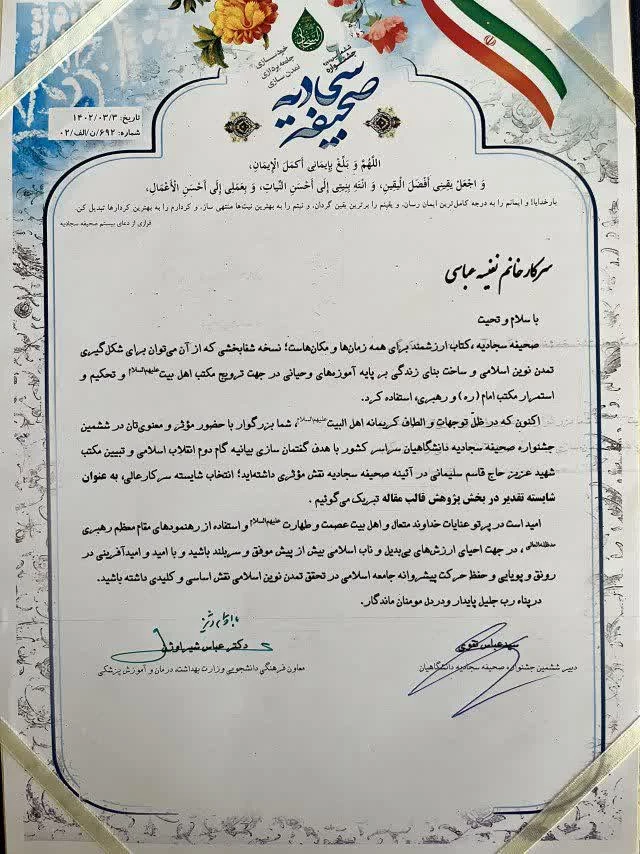 ششمین جشنواره
صحیفه سجادیه
خودسازی
جامعه پردازی
تمدن سازی
تاریخ: ۱۴۰۲/۰۳/۳
شماره: ۶۹۲/ن/الف/۰۲
اَللّهُمَّ وَ بَلِّغْ بِإیمَانِی أَکمَلَ الْإِیمَانِ،
وَ اجْعَلْ یَقِینِی أَفْضَلَ الْیَقِینِ، وَ انْتَهِ بِنِیَّتِی إِلَی أَحْسَنِ النِّیَّاتِ، وَ بِعَمَلِی إِلَی أَحْسَنِ الْأَعْمَالِ،
بارخدایا! و ایمانم را به درجه کامل‌ترین ایمان رسان، و یقینم را برترین یقین گردان، و نیتم را به بهترین نیت‌ها منتهی ساز، و کردارم را به بهترین کردارها تبدیل کن.
فرازی از دعای بیستم صحیفه سجادیه
سرکار خانم نفیسه عباسی
با سلام و تحیت
صحیفه سجادیه ،کتاب ارزشمند برای همه زمان‌ها و مکان‌هاست؛ نسخه شفابخشی که از آن می‌توان برای شکل‌گیری
تمدن نوین اسلامی و ساخت بنای زندگی بر پایه آموزه‌های وحیانی در جهت ترویج مکتب اهل بیت علیهم‌السلام و تحکیم و
استمرار مکتب امام (ره) و رهبری، استفاده کرد.
اکنون که در ظلّ توجهات و الطاف کریمانه اهل البیت علیهم‌السلام، شما بزرگوار با حضور مؤثر و معنوی‌تان در ششمین
جشنواره صحیفه سجادیه دانشگاهیان سراسر کشور با هدف گفتمان سازی بیانیه گام دوم انقلاب اسلامی و تبیین مکتب
شهید عزیز حاج قاسم سلیمانی در آئینه صحیفه سجادیه نقش مؤثری داشته‌اید؛ انتخاب شایسته سرکارعالی، به عنوان
شایسته تقدیر در بخش پژوهش قالب مقاله تبریک می‌گوئیم .
امید است در پرتو عنایات خداوند متعال و اهل بیت عصمت و طهارت علیهم‌السلام و استفاده از رهنمودهای مقام معظم رهبری
مدظله‌العالی، در جهت احیای ارزش‌های بی‌بدیل و ناب اسلامی بیش از پیش موفق و سربلند باشید و با امید و امیدآفرینی در
رونق و پویایی و حفظ حرکت پیشروانه جامعه اسلامی در تحقق تمدن نوین اسلامی نقش اساسی و کلیدی داشته باشید.
در پناه رب جلیل پایدار ودردل مومنان ماندگار.
سیدعباس تقوی
دبیر ششمین جشنواره صحیفه سجادیه دانشگاهیان
دکتر عباس شیراوژن
معاون فرهنگی دانشجویی وزارت بهداشت، درمان و آموزش پزشکی